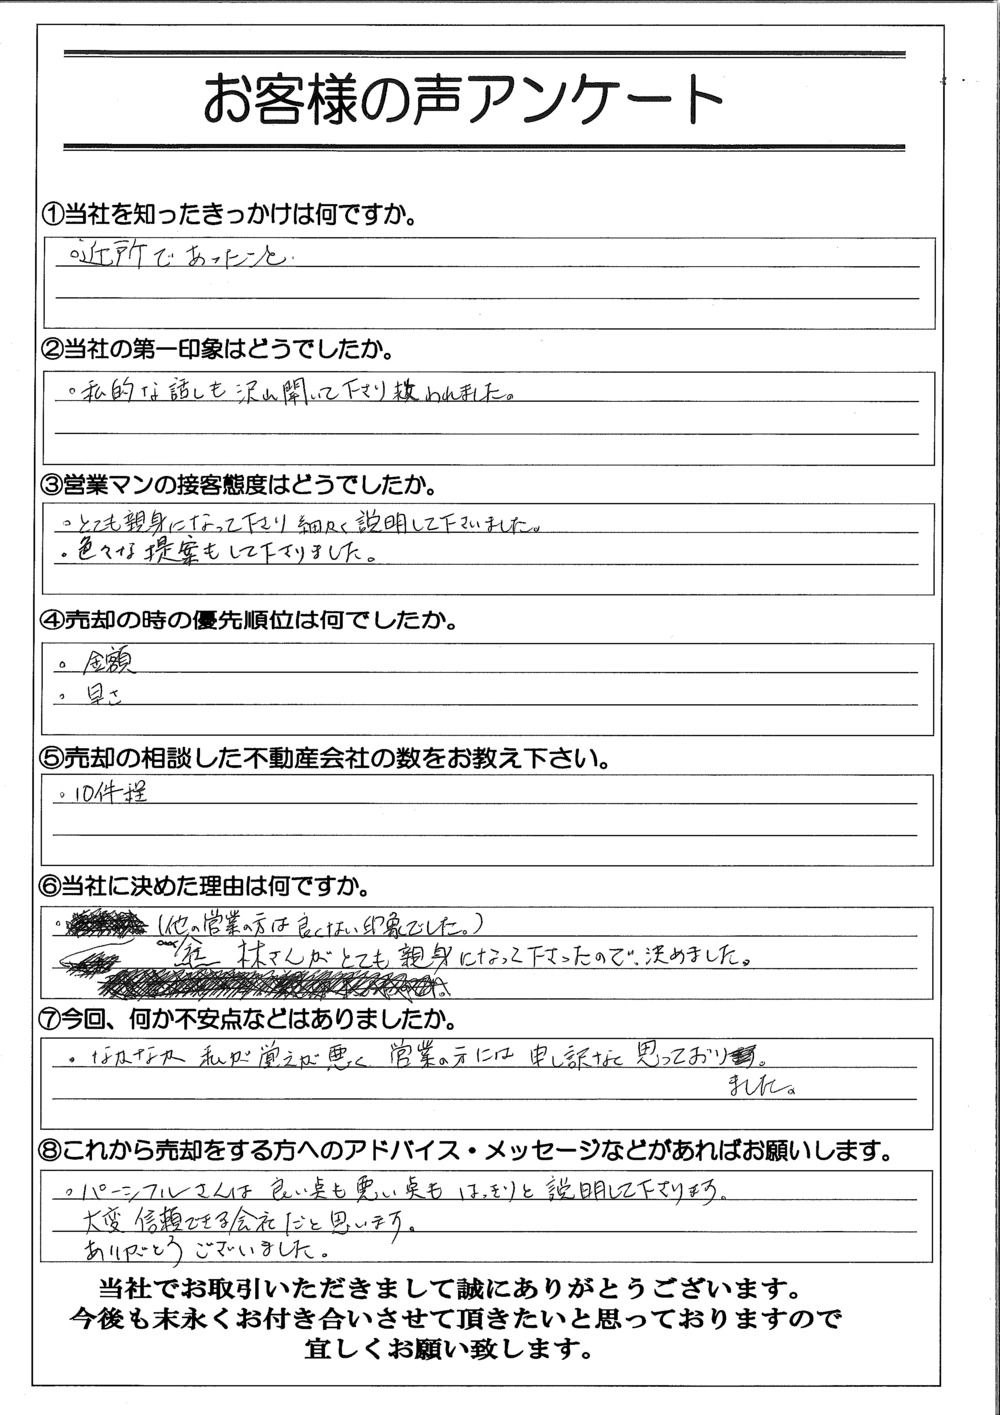 お客様の声アンケート
①当社を知ったきっかけは何ですか。
。近所であったこと.
②当社の第一印象はどうでしたか。
。私的な話しも沢山聞いて下さり救われました。
③営業マンの接客態度はどうでしたか。
。とても親身になって下さり細かく説明して下さいました。
・色々な提案もして下さりました。
④売却の時の優先順位は何でしたか。
。金額
。早さ
⑤売却の相談した不動産会社の数をお教え下さい。
。10件程
⑥当社に決めた理由は何ですか。
・(他の営業の方は良くない印象でした。)
林さんがとても親身になって下さったので、決めました。
⑦今回、何か不安点などはありましたか。
・なかなか私が覚えが悪く営業の方には申し訳なく思っており
ました。
⑧これから売却をする方へのアドバイス・メッセージなどがあればお願いします。
。パーシフルさんは良い点も悪い点もはっきりと説明して下さります。
大変信頼できる会社だと思います。
ありがとうございました。
当社でお取引いただきまして誠にありがとうございます。
今後も末永くお付き合いさせて頂きたいと思っておりますので
宜しくお願い致します。